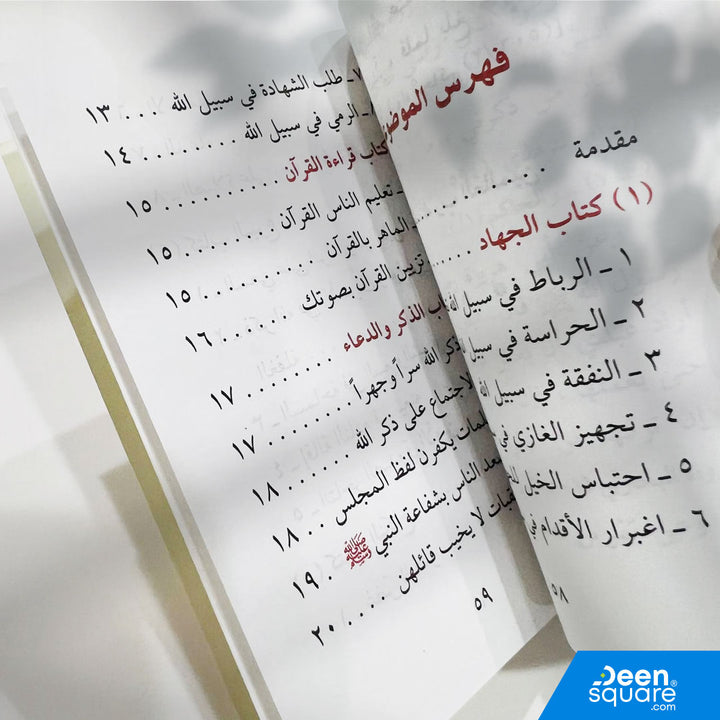 فهرس الموض
مقدمة ..........
(١) كتاب الجهاد ......
١ ـ الرباط في سبيل
٢ ـ الحراسة في سبيل
٣ ـ النفقة في سبيل
٤ ـ تجهيز الغازي في
٥ ـ احتباس الخيل
٦ ـ اغبرار الأقدام في
٥٨
٧ـ طلب الشهادة في سبيل الله ... ١٣
٨ـ الرمي في سبيل الله ......... ١٤
كتاب قراءة القرآن .......... ١٥
ـ تعليم الناس القرآن ......... ١٥
الماهر بالقرآن .......... ١٥
تزين القرآن بصوتك ...... ١٦
الذكر والدعاء ........ ١٧
ذكر الله سراً وجهراً ........ ١٧
لاجتماع على ذكر الله ...... ١٨
لمات يكفرن لفظ المجلس .. ١٨
عد الناس بشفاعة النبي ﷺ . ١٩
قبات لا يخيب قائلهن ..... ٢٠
٥٩
Deen
square®
.com